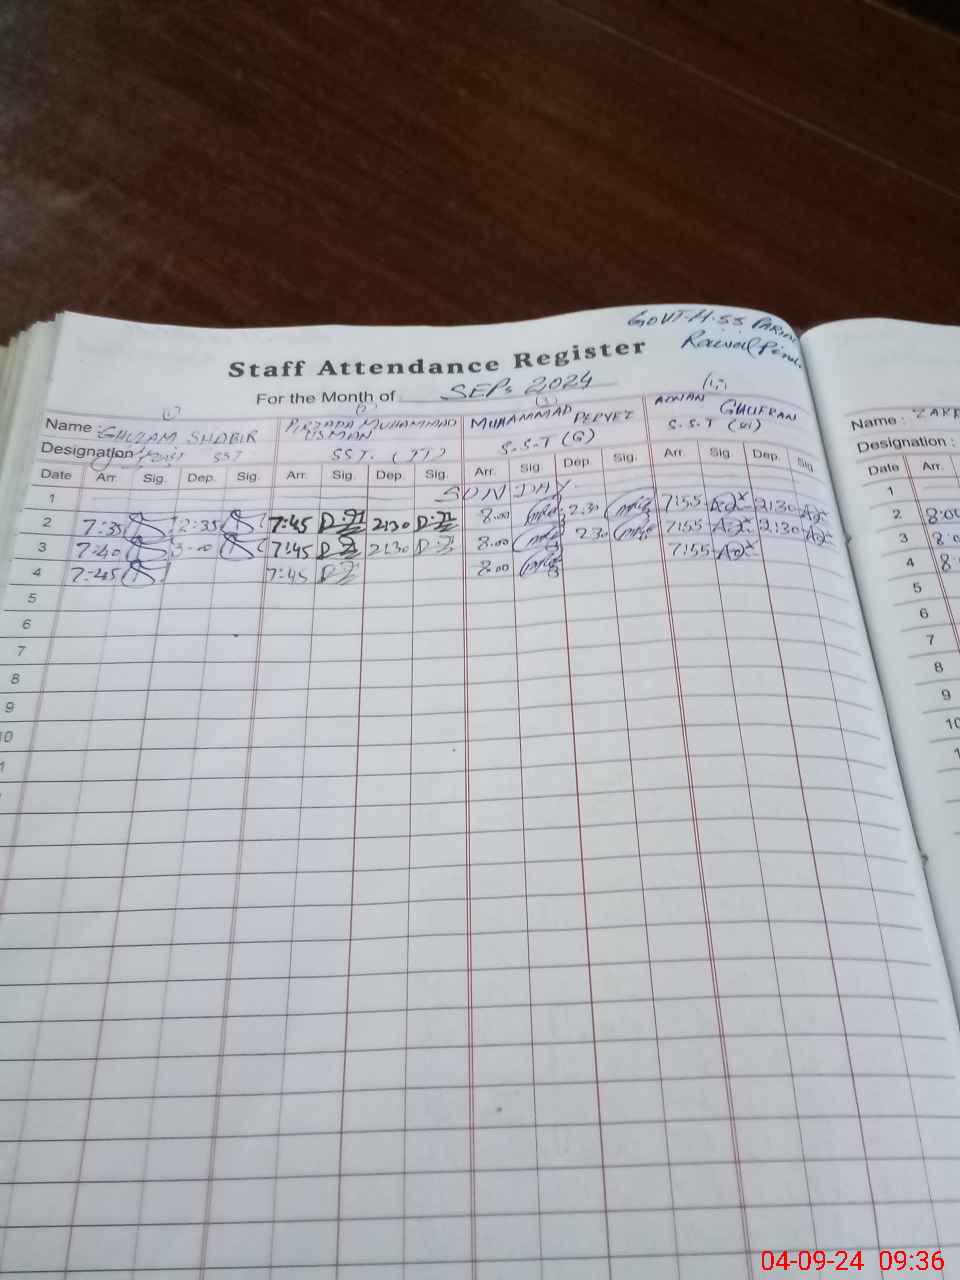 GOVT. H. SS
Staff Attendance Register
For the Month of SEP, 2024
Name : GHULAM SHABIR PIRZADA MUHAMMAD USMAN MUHAMMAD PERVEZ ADNAN GHUFRAN
Designation : SST SST. (IT) S.S.T (G) S.S.T
Date Arr. Sig. Dep. Sig. Arr. Sig. Dep. Sig. Arr. Sig. Dep. Sig. Arr. Sig. Dep. Sig.
1 SUNDAY
2 7:35 2:35 7:45 2:30 8.00 2.30 7:55 2:30
3 7:40 3:00 7:45 2:30 8.00 2.30 7:55 2:30
4 7:45 7:45 8.00 7:55
5
6
7
8
9
10
Name :
Designation :
Date Arr.
1
2 8:00
3
4
5
6
7
8
9
10
04-09-24 09:36